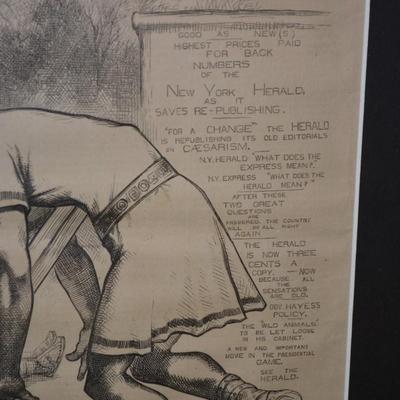 GOOD AS NEW(S)
HIGHEST PRICES PAID
FOR BACK
NUMBERS
OF THE
NEW YORK HERALD,
AS IT
SAVES RE-PUBLISHING.
"FOR A CHANGE" THE HERALD
IS REPUBLISHING ITS OLD EDITORIALS
ON CÆSARISM.
N.Y. HERALD "WHAT DOES THE
EXPRESS MEAN?"
N.Y. EXPRESS "WHAT DOES THE
HERALD MEAN?"
AFTER THESE
TWO GREAT
QUESTIONS
ARE
ANSWERED, THE COUNTRY
WILL BE ALL RIGHT
AGAIN
THE HERALD
IS NOW THREE
CENTS A
COPY. — NOW
BECAUSE ALL
THE
SENSATIONS
ARE OLD.
GOV. HAYES'S
POLICY.
THE 'WILD ANIMALS'
TO BE LET LOOSE
IN HIS CABINET.
A NEW AND IMPORTANT
MOVE IN THE PRESIDENTIAL
GAME.
SEE THE
HERALD.